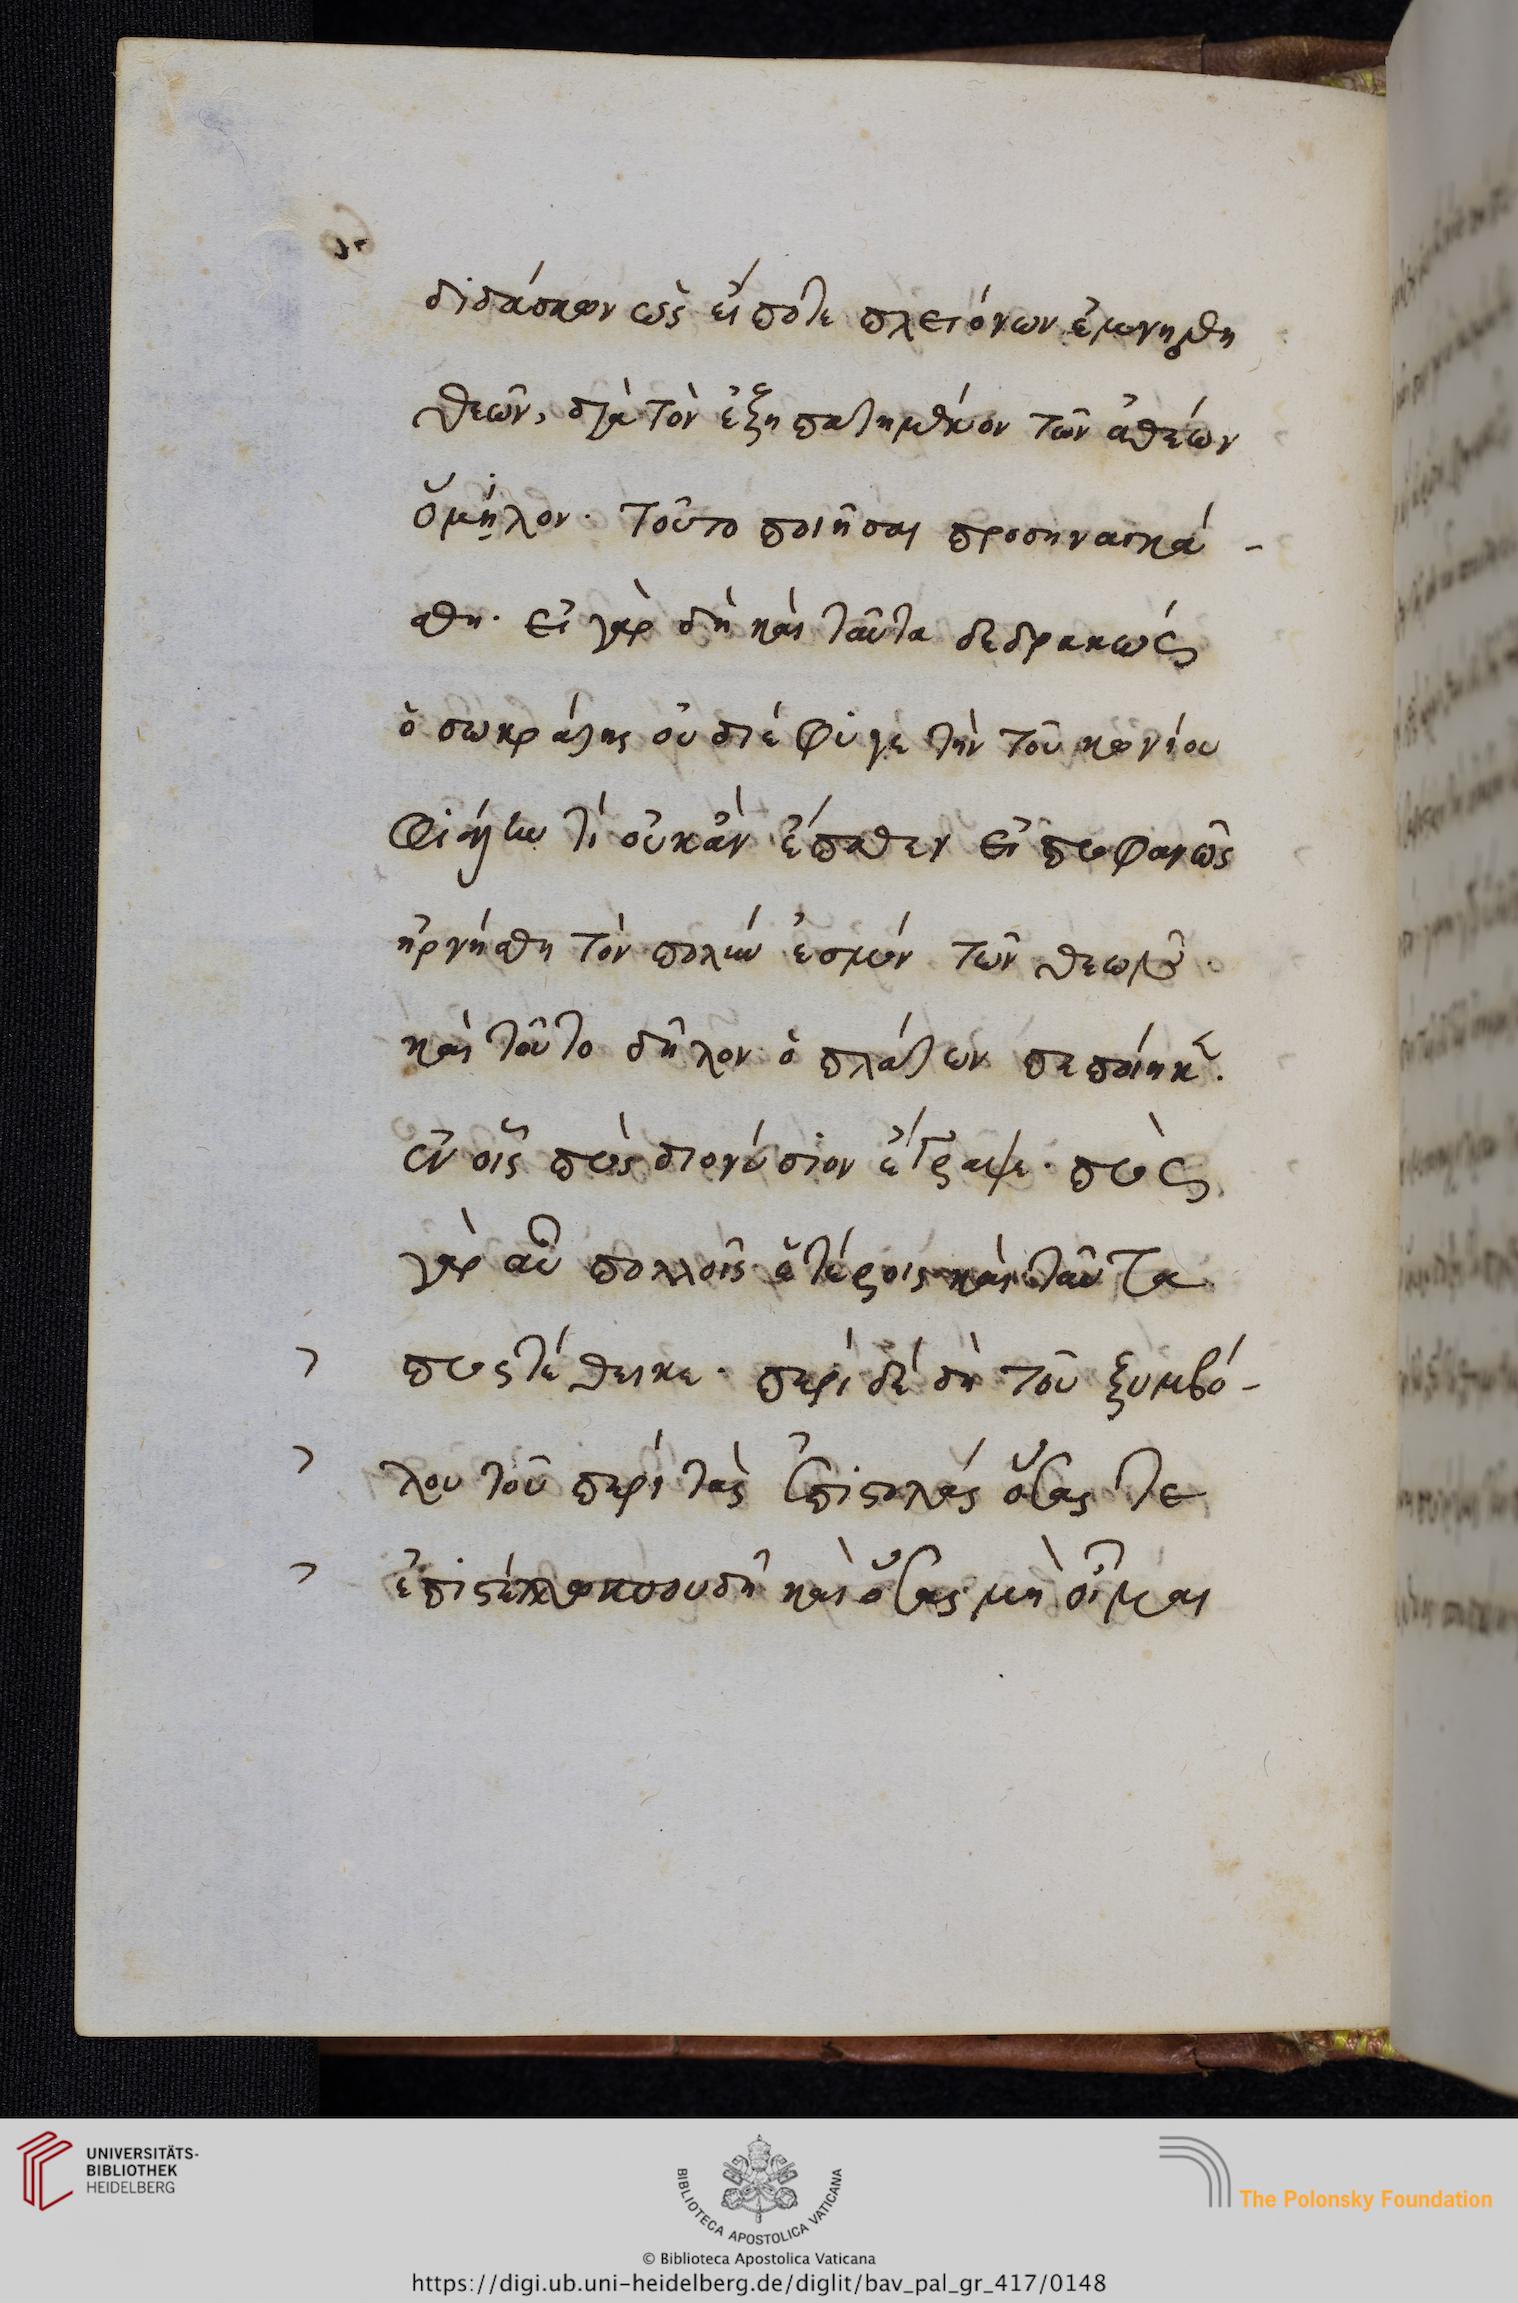 διδάσκων ὡς εἴ ποτε πλειόνων ἐμνήσθη
θεῶν, διὰ τὸν ἐξηπατημένον τῶν ἀθέων
ὅμιλον. τοῦτο ποιῆσαι προσηναγκά-
σθη. εἰ γὰρ δὴ καὶ ταῦτα δεδρακὼς
ὁ σωκράτης οὐ διέφυγε τὴν τοῦ κωνίου
τί οὐκ ἂν ἔπαθεν εἰ προφανῶς
ἠρνήσθη τὸν πολὺν ἑσμὸν τῶν θεῶν.
καὶ τοῦτο δῆλον ὁ πλάτων πεποίηκε.
ἐν οἷς πρὸς διονύσιον ἔγραψε. πρὸς
γὰρ αὖ πολλοῖς ἑτέροις καὶ ταῦτα
προστέθεικε. περὶ δὲ δὴ τοῦ ξυμβό-
λου τοῦ περὶ τὰς ἐπιστολὰς ὅσας τε
ἐπιστέλλω σπουδῇ καὶ ὅσας μὴ οἶμαι
UNIVERSITÄTS-
BIBLIOTHEK
HEIDELBERG
BIBLIOTECA APOSTOLICA VATICANA
The Polonsky Foundation
© Biblioteca Apostolica Vaticana
https://digi.ub.uni-heidelberg.de/diglit/bav_pal_gr_417/0148